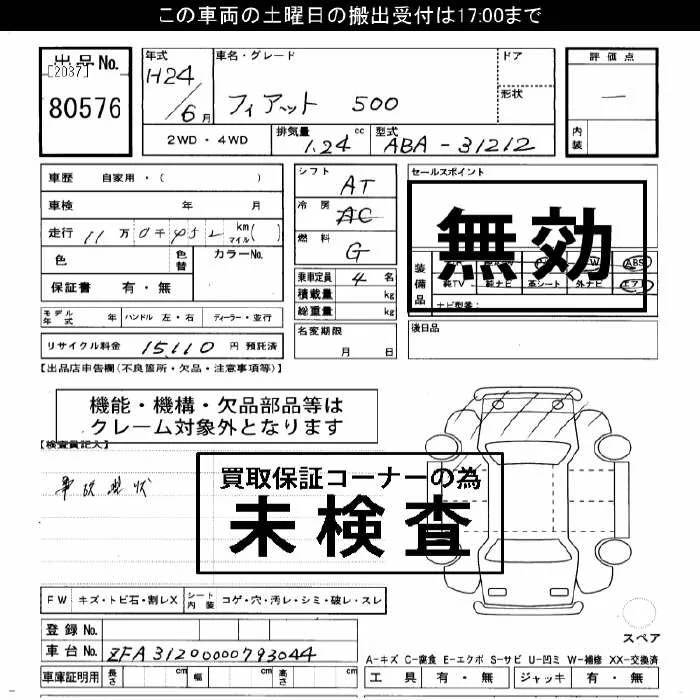 この車両の土曜日の搬出受付は17:00まで
出品No.
[2037]
80576
年式 H24/6月
車名・グレード
フィアット 500
ドア
形状
評価点
—
内装
2WD・4WD
排気量 1.24 cc
型式 ABA-31212
車歴 自家用・( )
車検 年 月
走行 11万0千452 km マイル( )
色
色替
カラーNo.
保証書 有・無
モデル年式 年
ハンドル 左・右
ディーラー・並行
リサイクル料金 15,110 円 預託済
シフト AT
冷房 AC
燃料 G
乗車定員 4 名
積載量 kg
総重量 kg
名変期限
月 日
セールスポイント
無効
装備品
ABS
純TV 純ナビ 革シート 外ナビ エア
ナビ型番:
後日品
【出品店申告欄(不良箇所・欠品・注意事項等)】
機能・機構・欠品部品等は
クレーム対象外となります
【検査員記入】
事故現状
買取保証コーナーの為
未検査
FW キズ・トビ石・割レX
シート内装 コゲ・穴・汚レ・シミ・破レ・スレ
登録No.
車台No. ZFA31200000793044
車庫証明用 長さ cm 幅 cm 高さ cm
スペア
A-キズ C-腐食 E-エクボ S-サビ U-凹ミ W-補修 XX-交換済
工具 有・無
ジャッキ 有・無